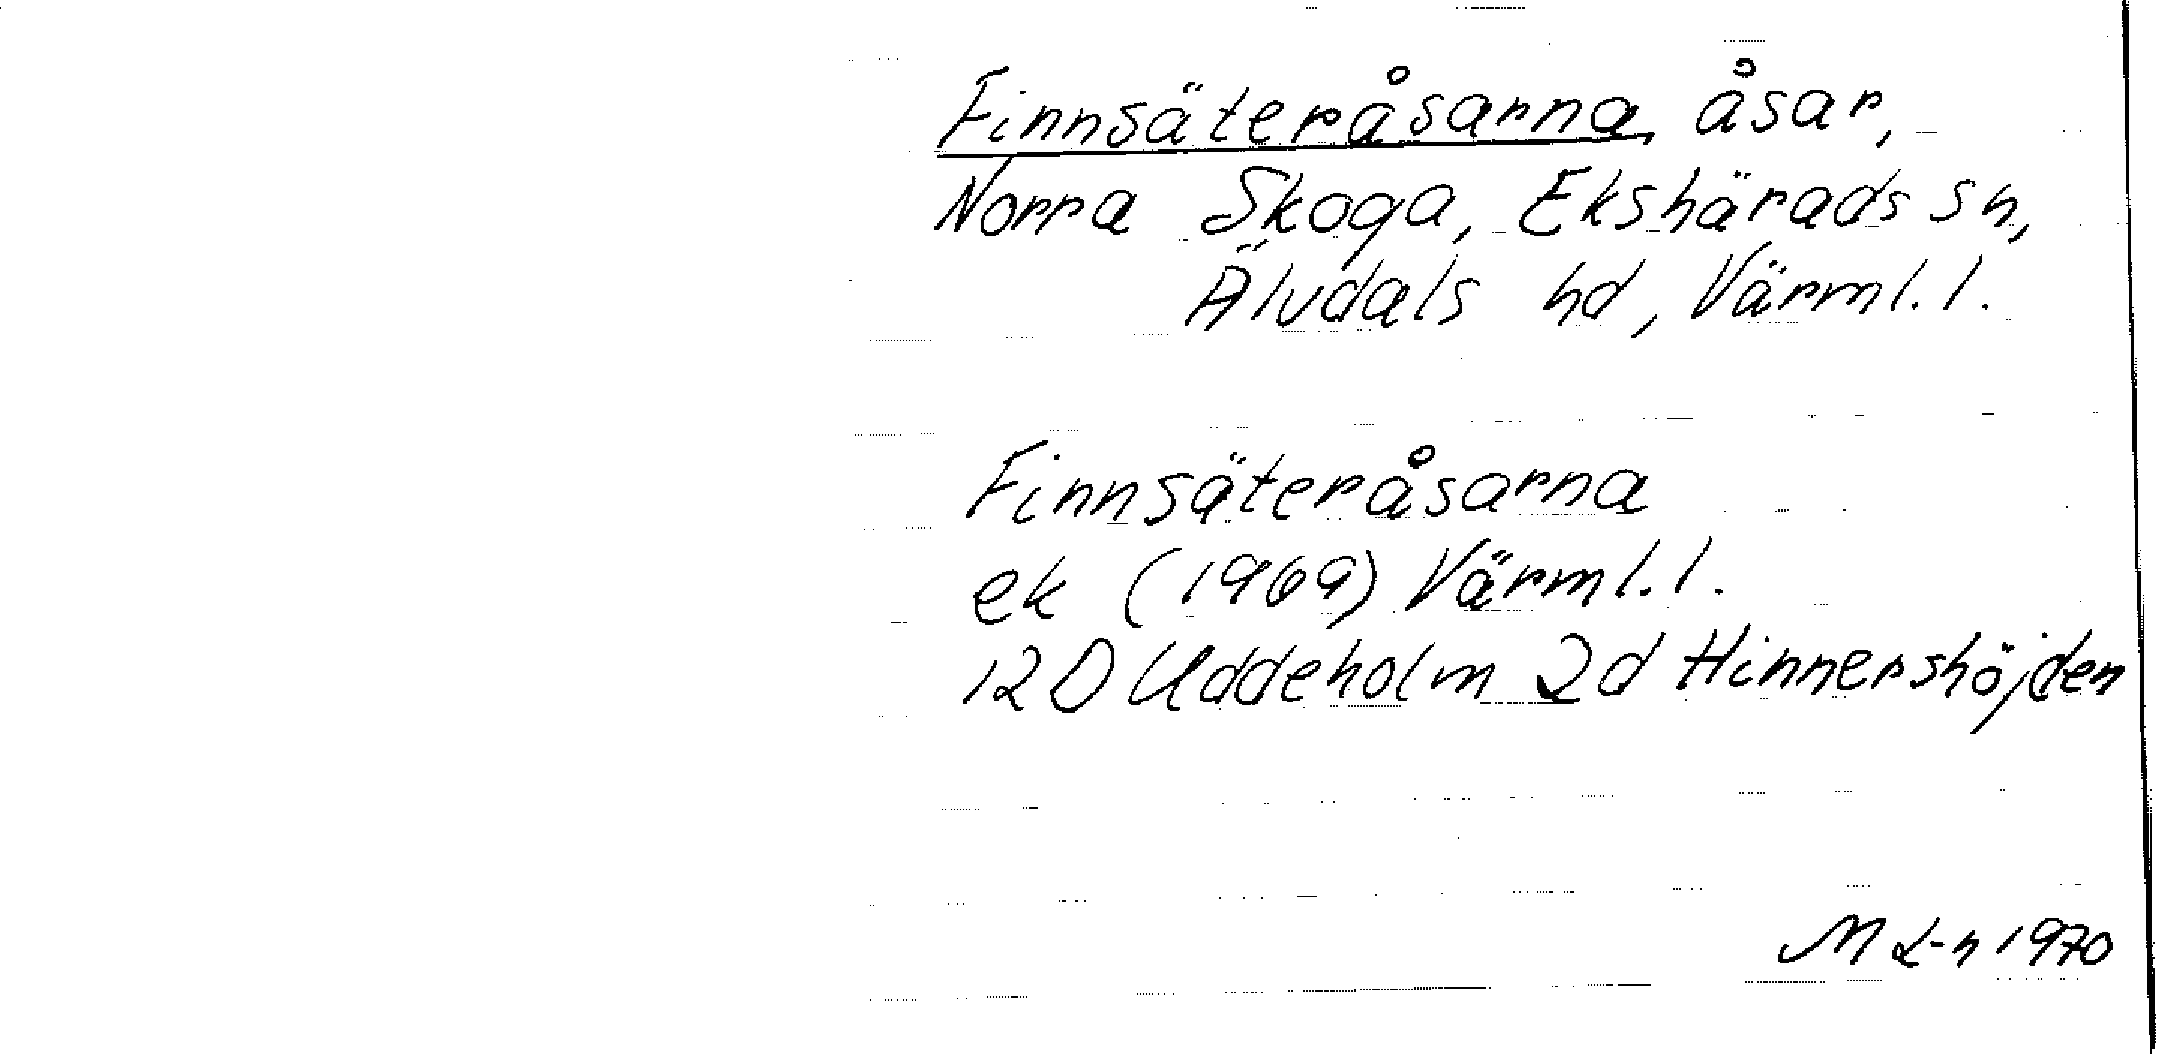 Finnsäteråsarna, åsar,
Norra Skoga, Ekshärads sn,
Älvdals hd, Värml. l.
Finnsäteråsarna
ek (1969) Värml. l.
12D Uddeholm 2d Hinnershöjden
M L-n 1970